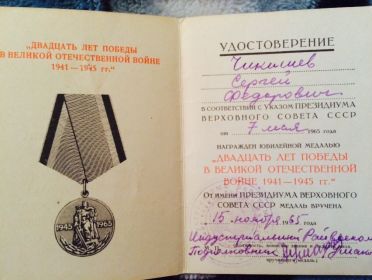 „ДВАДЦАТЬ ЛЕТ ПОБЕДЫ
В ВЕЛИКОЙ ОТЕЧЕСТВЕННОЙ ВОЙНЕ
1941—1945 гг.“
1945 1965
УДОСТОВЕРЕНИЕ
Чикишев
Сергей
Федорович
В СООТВЕТСТВИИ С УКАЗОМ ПРЕЗИДИУМА
ВЕРХОВНОГО СОВЕТА СССР
от 7 мая 1965 года
НАГРАЖДЕН ЮБИЛЕЙНОЙ МЕДАЛЬЮ
„ДВАДЦАТЬ ЛЕТ ПОБЕДЫ
В ВЕЛИКОЙ ОТЕЧЕСТВЕННОЙ
ВОЙНЕ 1941—1945 гг.“
ОТ ИМЕНИ ПРЕЗИДИУМА ВЕРХОВНОГО
СОВЕТА СССР МЕДАЛЬ ВРУЧЕНА
15 ноября 1965 года
Индустриальный Райвоенком
Подполковник